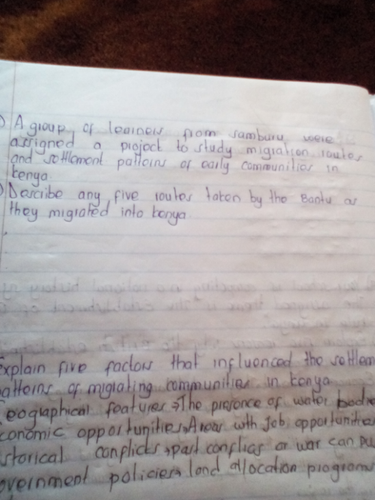 ) A group of learners from samburu were
assigned a project to study migration routes
and settlement patterns of early communities in
kenya
) Describe any five routes taken by the Bantu as
they migrated into kenya
Explain five factors that influenced the settlem
patterns of migrating communities in kenya
eographical features → The presence of water bodie
conomic opportunities → Areas with job opportunities
storical conflicts → past conflics or war can pu
overnment policies → land allocation programs